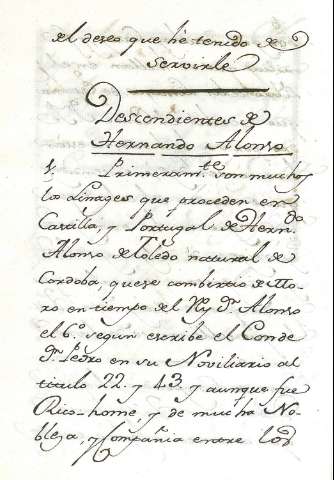 el deseo que he tenido de
Servirle
Descendientes de
Hernando Alonso
1. Primeramte. son muchos
los Linages que proceden en
Castilla, y Portugal de Herndo.
Alonso de Toledo natural de
Cordoba, quese combirtio de Mo-
ro en tiempo del Rey Dn. Alonso
el 6º. segun escribe el Conde
Dn. Pedro en su Noviliario al
titulo 22 y 43 y aunque fue
Rico-home, y de mucha No-
bleza, y Compañia entre los